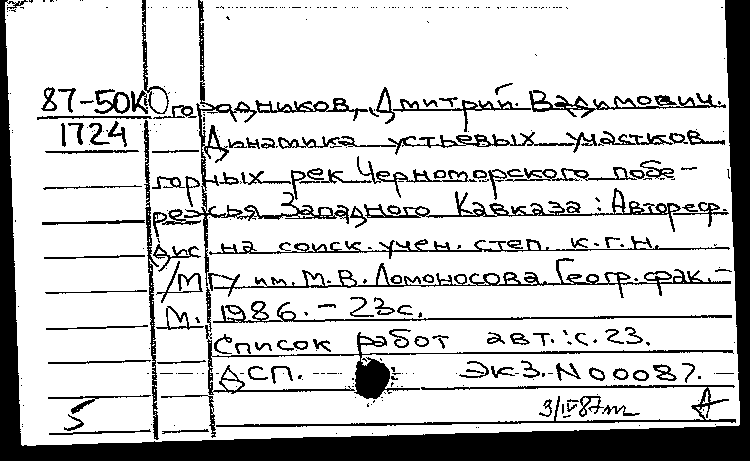 87-50К Огородников, Дмитрий Вадимович.
1724 Динамика устьевых участков
горных рек Черноморского побе-
режья Западного Кавказа: Автореф.
дис. на соиск. учен. степ. к.г.н.
/МГУ им. М.В. Ломоносова. Геогр. фак. -
М. 1986. - 23с.
Список работ авт.: с. 23.
ДСП. Экз. N 00087.
5 3/IV87 А